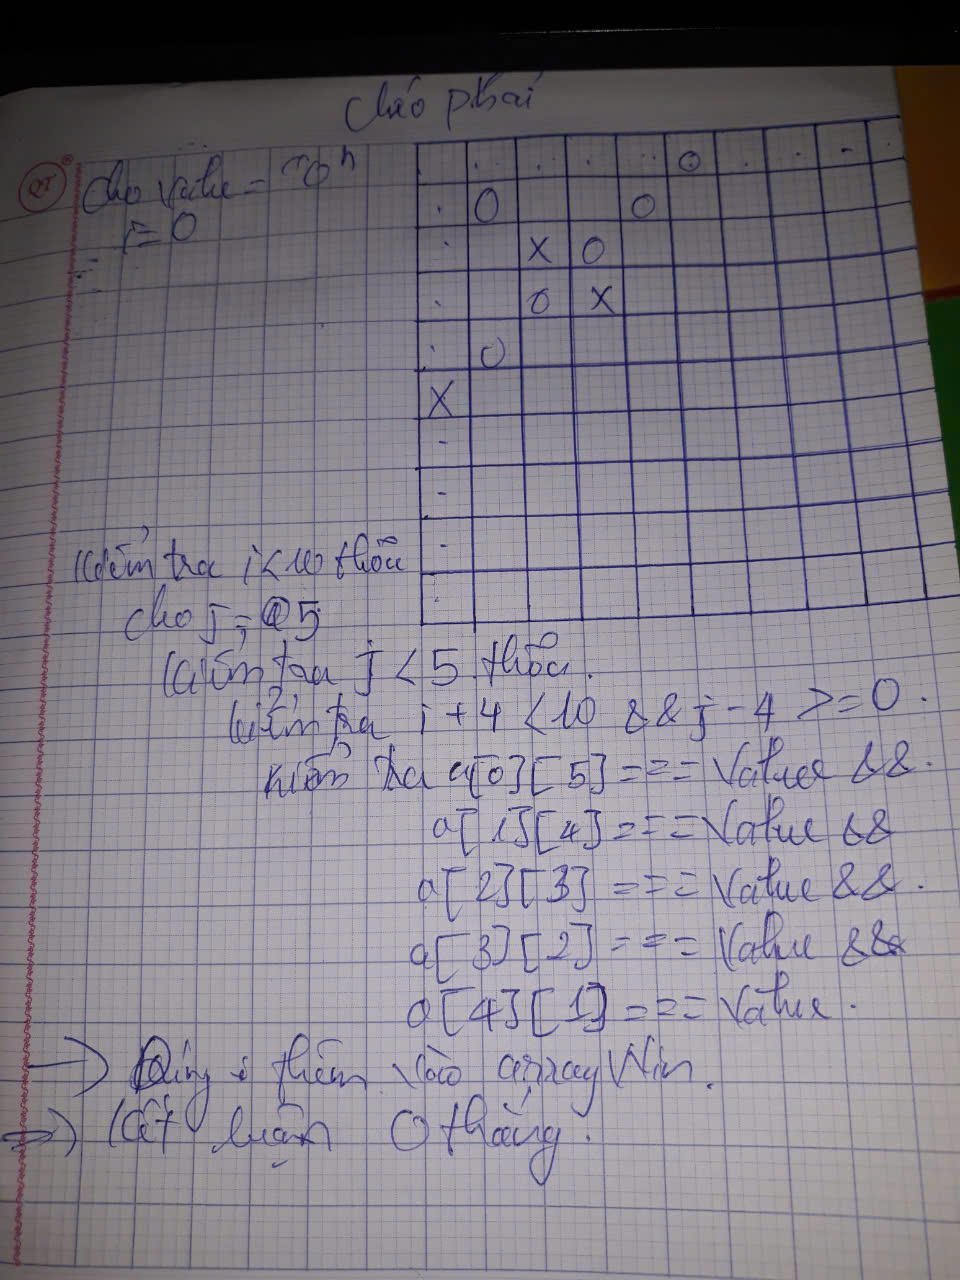 Chéo phải
QT
Cho value = "O"
i = 0
O
O O
X O
O X
O
X
Kiểm tra i < 10 thỏa
cho j = 5
Kiểm tra j < 5 thỏa.
kiểm tra i + 4 < 10 && j - 4 >= 0.
kiểm tra a[0][5] === Value &&.
a[1][4] === Value &&
a[2][3] === Value &&.
a[3][2] === Value &&
a[4][1] === Value.
→ Đúng: thêm vào array Win.
⇒ Kết luận O thắng.